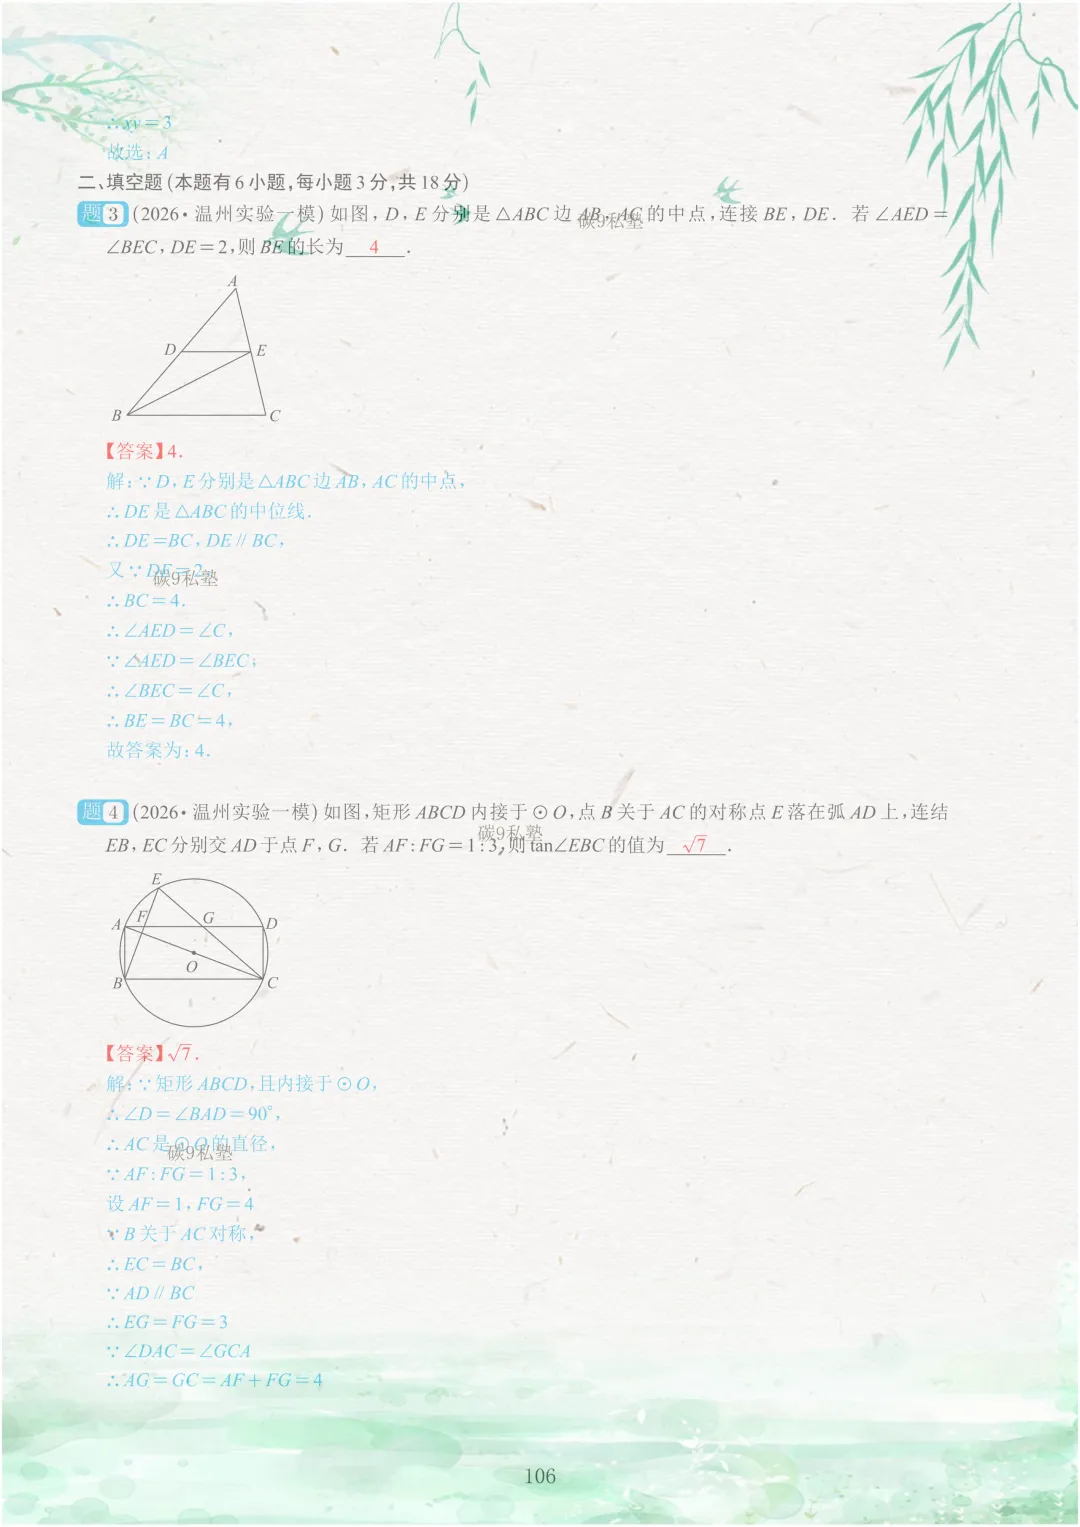 ∴xy=3
故选:A
二、填空题(本题有6小题,每小题3分,共18分)
题3 (2026·温州实验一模)如图,D,E分别是△ABC边AB,AC的中点,连接BE,DE.若∠AED=
∠BEC,DE=2,则BE的长为 4 .
碳9私塾
A
D E
B C
【答案】4.
解:∵D,E分别是△ABC边AB,AC的中点,
∴DE是△ABC的中位线.
∴DE=BC,DE∥BC,
又∵DE=2
碳9私塾
∴BC=4.
∴∠AED=∠C,
∵∠AED=∠BEC,
∴∠BEC=∠C,
∴BE=BC=4,
故答案为:4.
题4 (2026·温州实验一模)如图,矩形ABCD内接于⊙O,点B关于AC的对称点E落在弧AD上,连结
碳9私塾
EB,EC分别交AD于点F,G.若AF:FG=1:3,则tan∠EBC的值为 √7 .
E
A F G D
O
B C
【答案】√7.
解:∵矩形ABCD,且内接于⊙O,
∴∠D=∠BAD=90°,
∴AC是⊙O的直径,
碳9私塾
∵AF:FG=1:3,
设AF=1,FG=4
∵B关于AC对称,
∴EC=BC,
∵AD∥BC
∴EG=FG=3
∵∠DAC=∠GCA
∴AG=GC=AF+FG=4
106